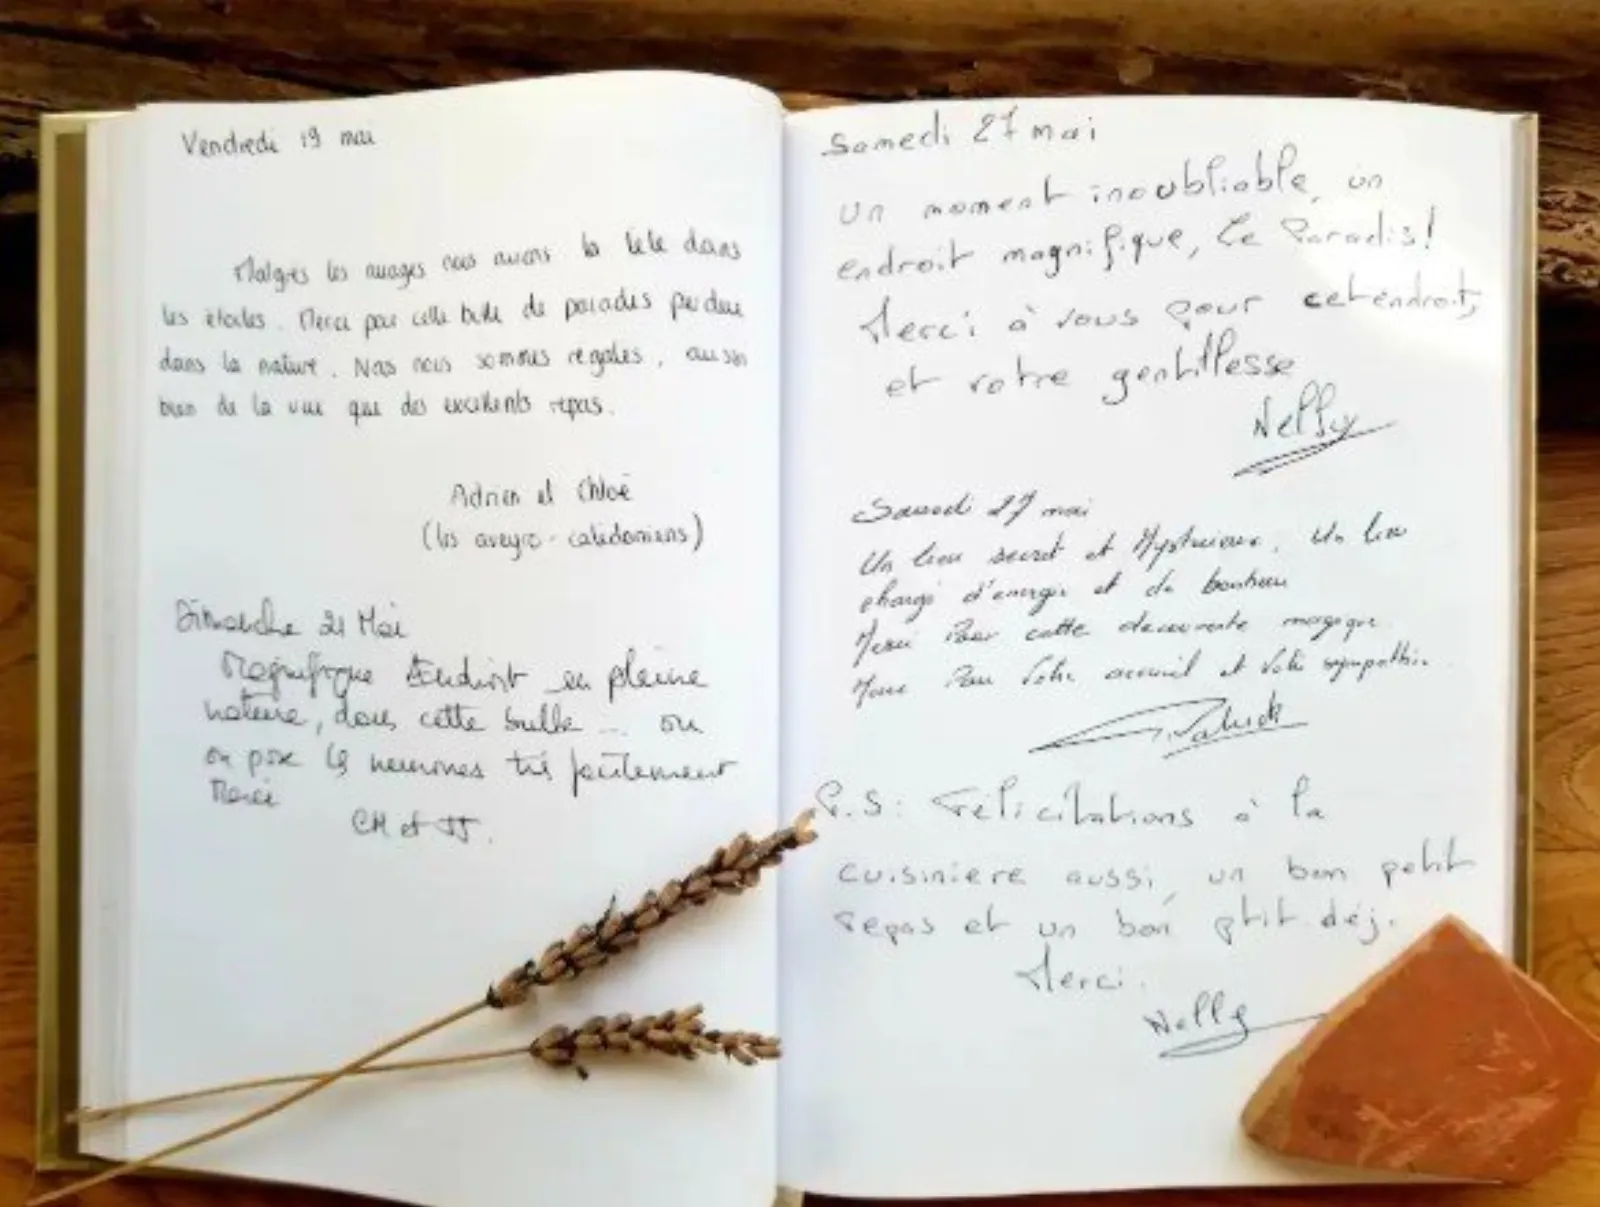 Vendredi 19 mai
Malgrès les nuages nous avons la tête dans
les étoiles. Merci pour cette bulle de paradis perdue
dans la nature. Nous nous sommes régalés, aussi
bien de la vue que des excellents repas.
Adrien et Chloé
(les aveyro-calédoniens)
Dimanche 21 Mai
Magnifique Endroit en pleine
nature, dans cette bulle ... ou
on pose les neurones très
Merci
CM et JJ.
Samedi 27 mai
Un moment inoubliable, un
endroit magnifique, le Paradis!
Merci à vous pour cet endroit,
et votre gentillesse
Nelly
Samedi 27 mai
Un lieu secret et Mystérieux. Un lieu
chargé d'énergie et de bonheur
Merci Pour cette découverte magique
Merci Pour Votre accueil et Votre sympathie.
Patrick
P.S: Félicitations à la
cuisiniere aussi, un bon petit
repas et un bon ptit déj.
Merci.
Nelly